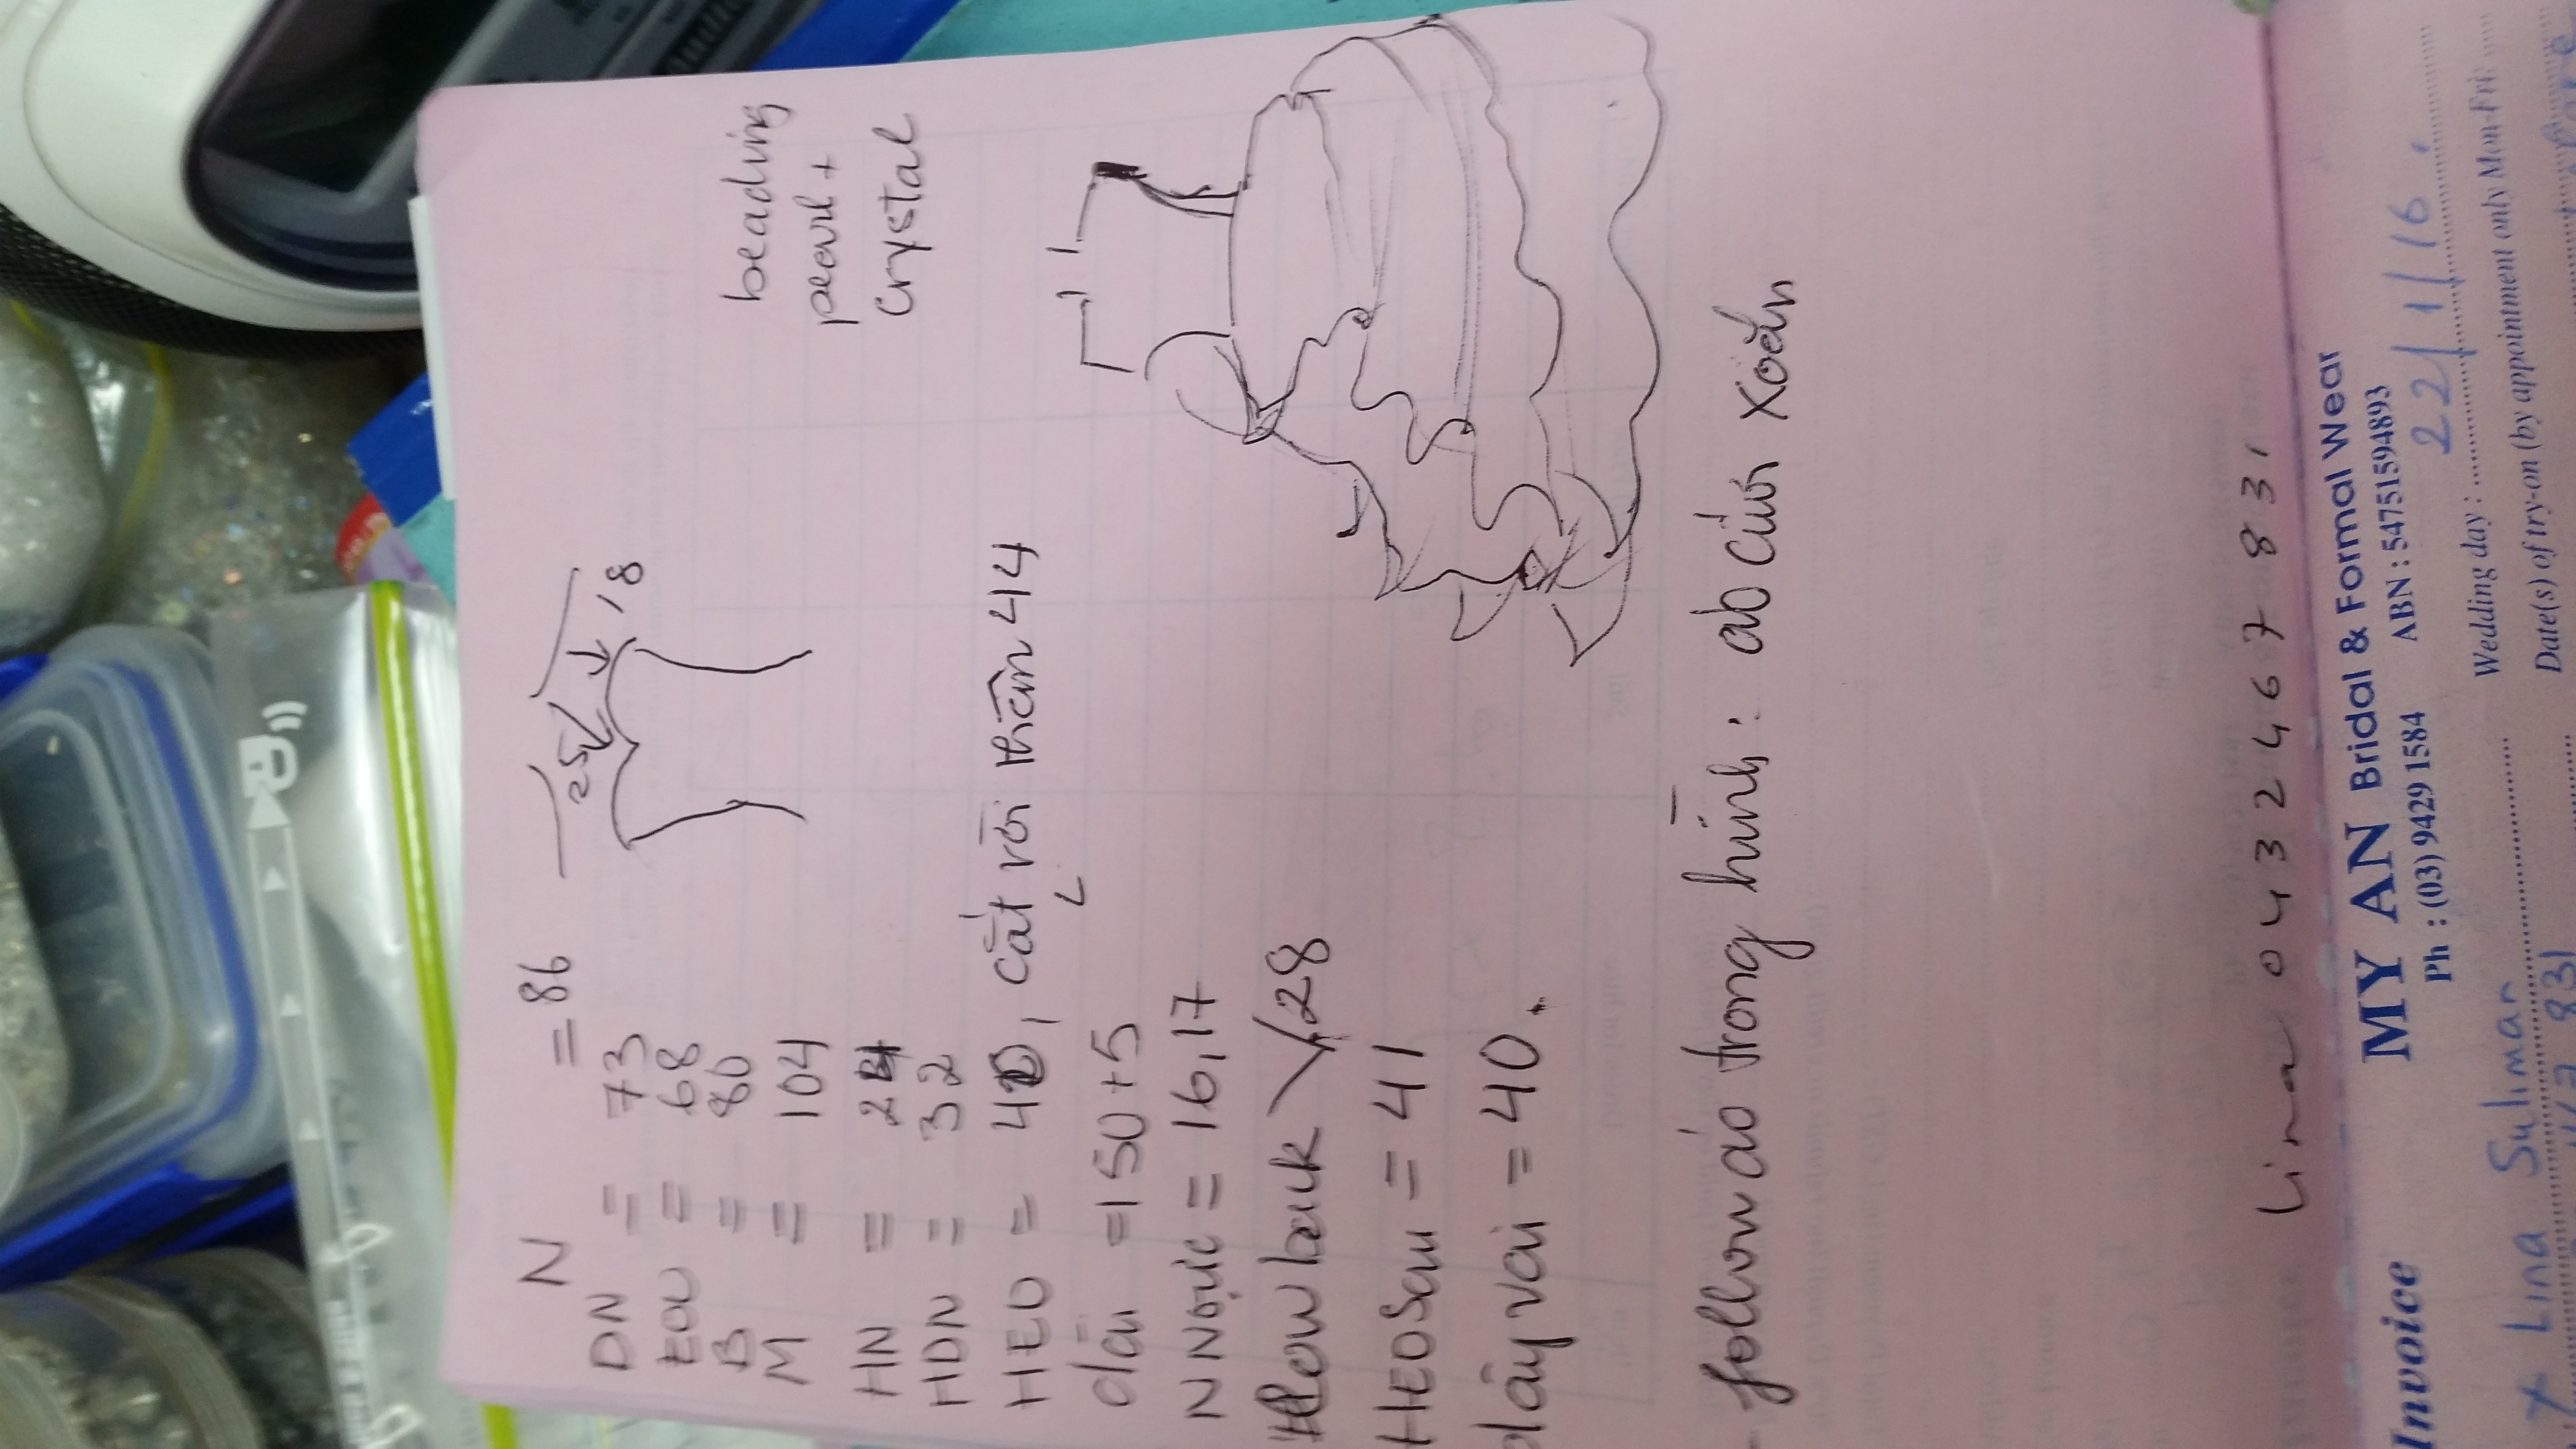 N = 86
DN = 73
EOU = 68
B = 80
M = 104
HN = 24
HDN = 32
HEO = 40, cắt rời thân 44
dài = 150 + 5
N Ngực = 16,17
Low back 28
HEO Sau = 41
dây vai = 40.
25
18
beading
pearl +
Crystal
- follow áo trong hình: áo cưới xoắn
Lina 0432467831
MY AN Bridal & Formal Wear
Ph : (03) 9429 1584 ABN : 54751594893
Invoice
Wedding day : 22/1/16.
Lina Suliman
Date(s) of try-on (by appointment only Mon-Fri:
67 831